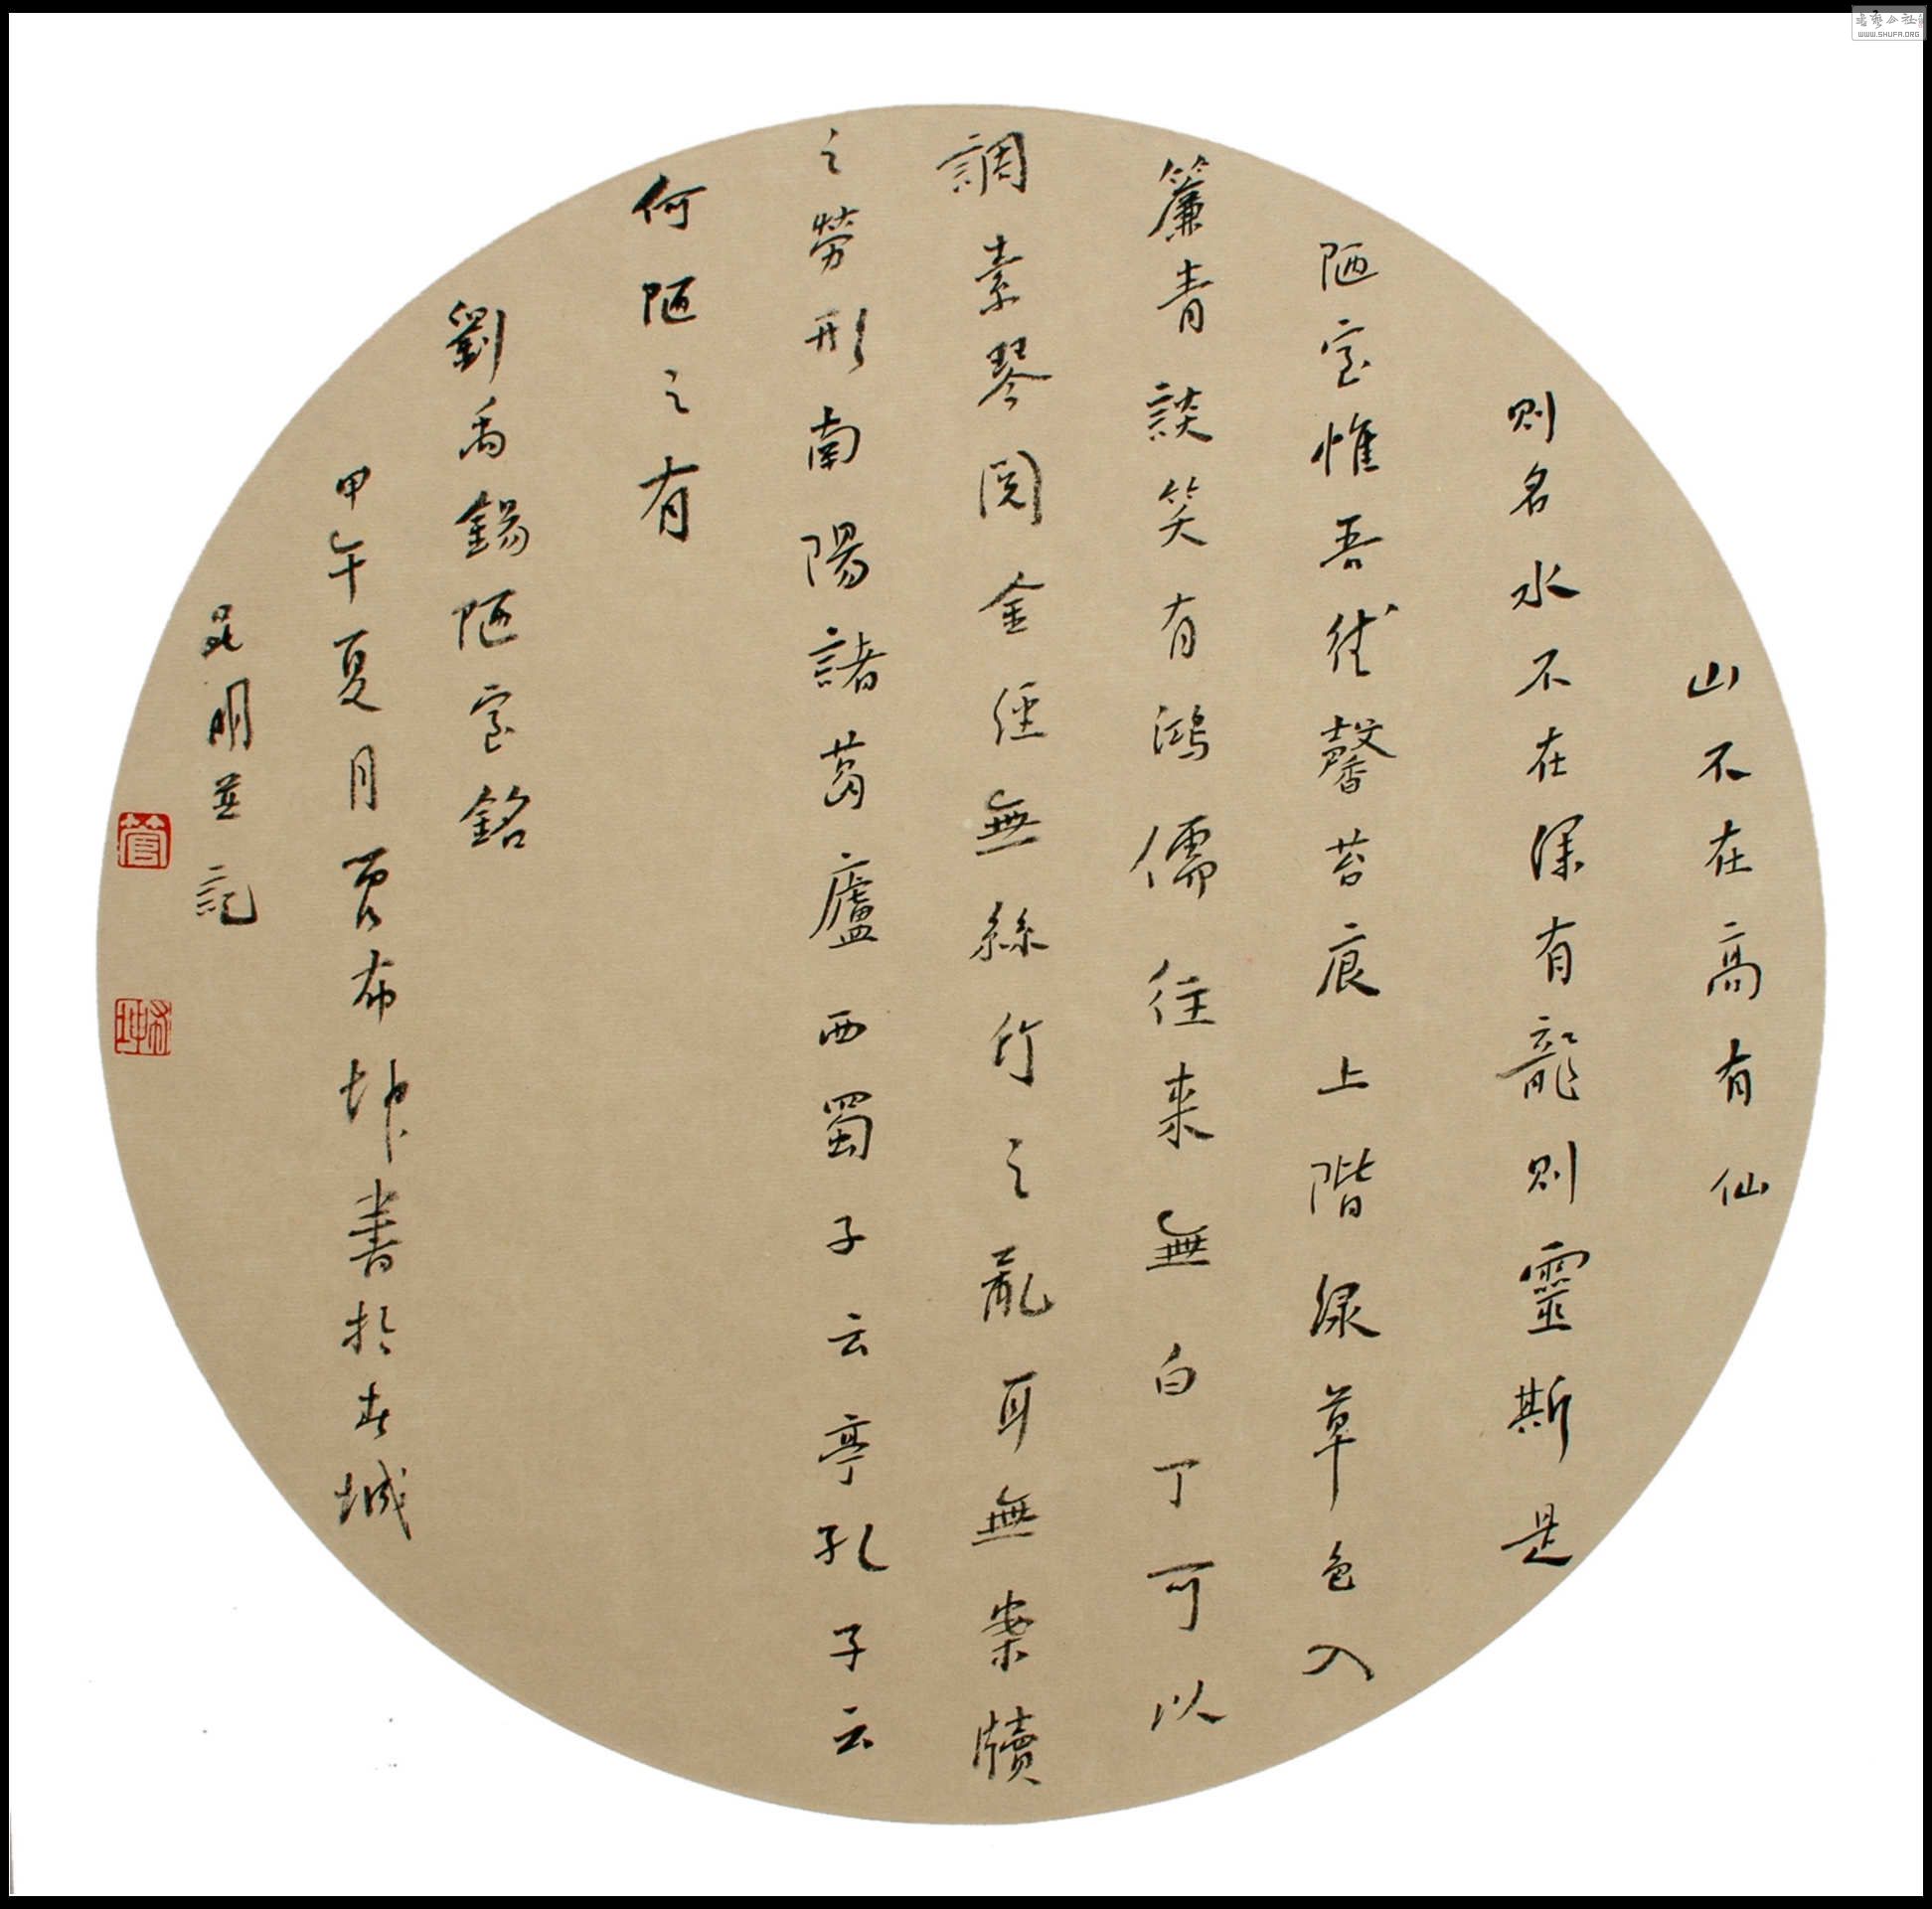 山不在高有仙
则名水不在深有龍则靈斯是
陋室惟吾德馨苔痕上階绿草色入
簾青談笑有鴻儒往来無白丁可以
調素琴閲金經無絲竹之亂耳無案牘
之勞形南陽諸葛廬西蜀子云亭孔子云
何陋之有
劉禹錫陋室銘
甲午夏月 布坤書於春城
昆明並記
WWW.SHUFA.ORG